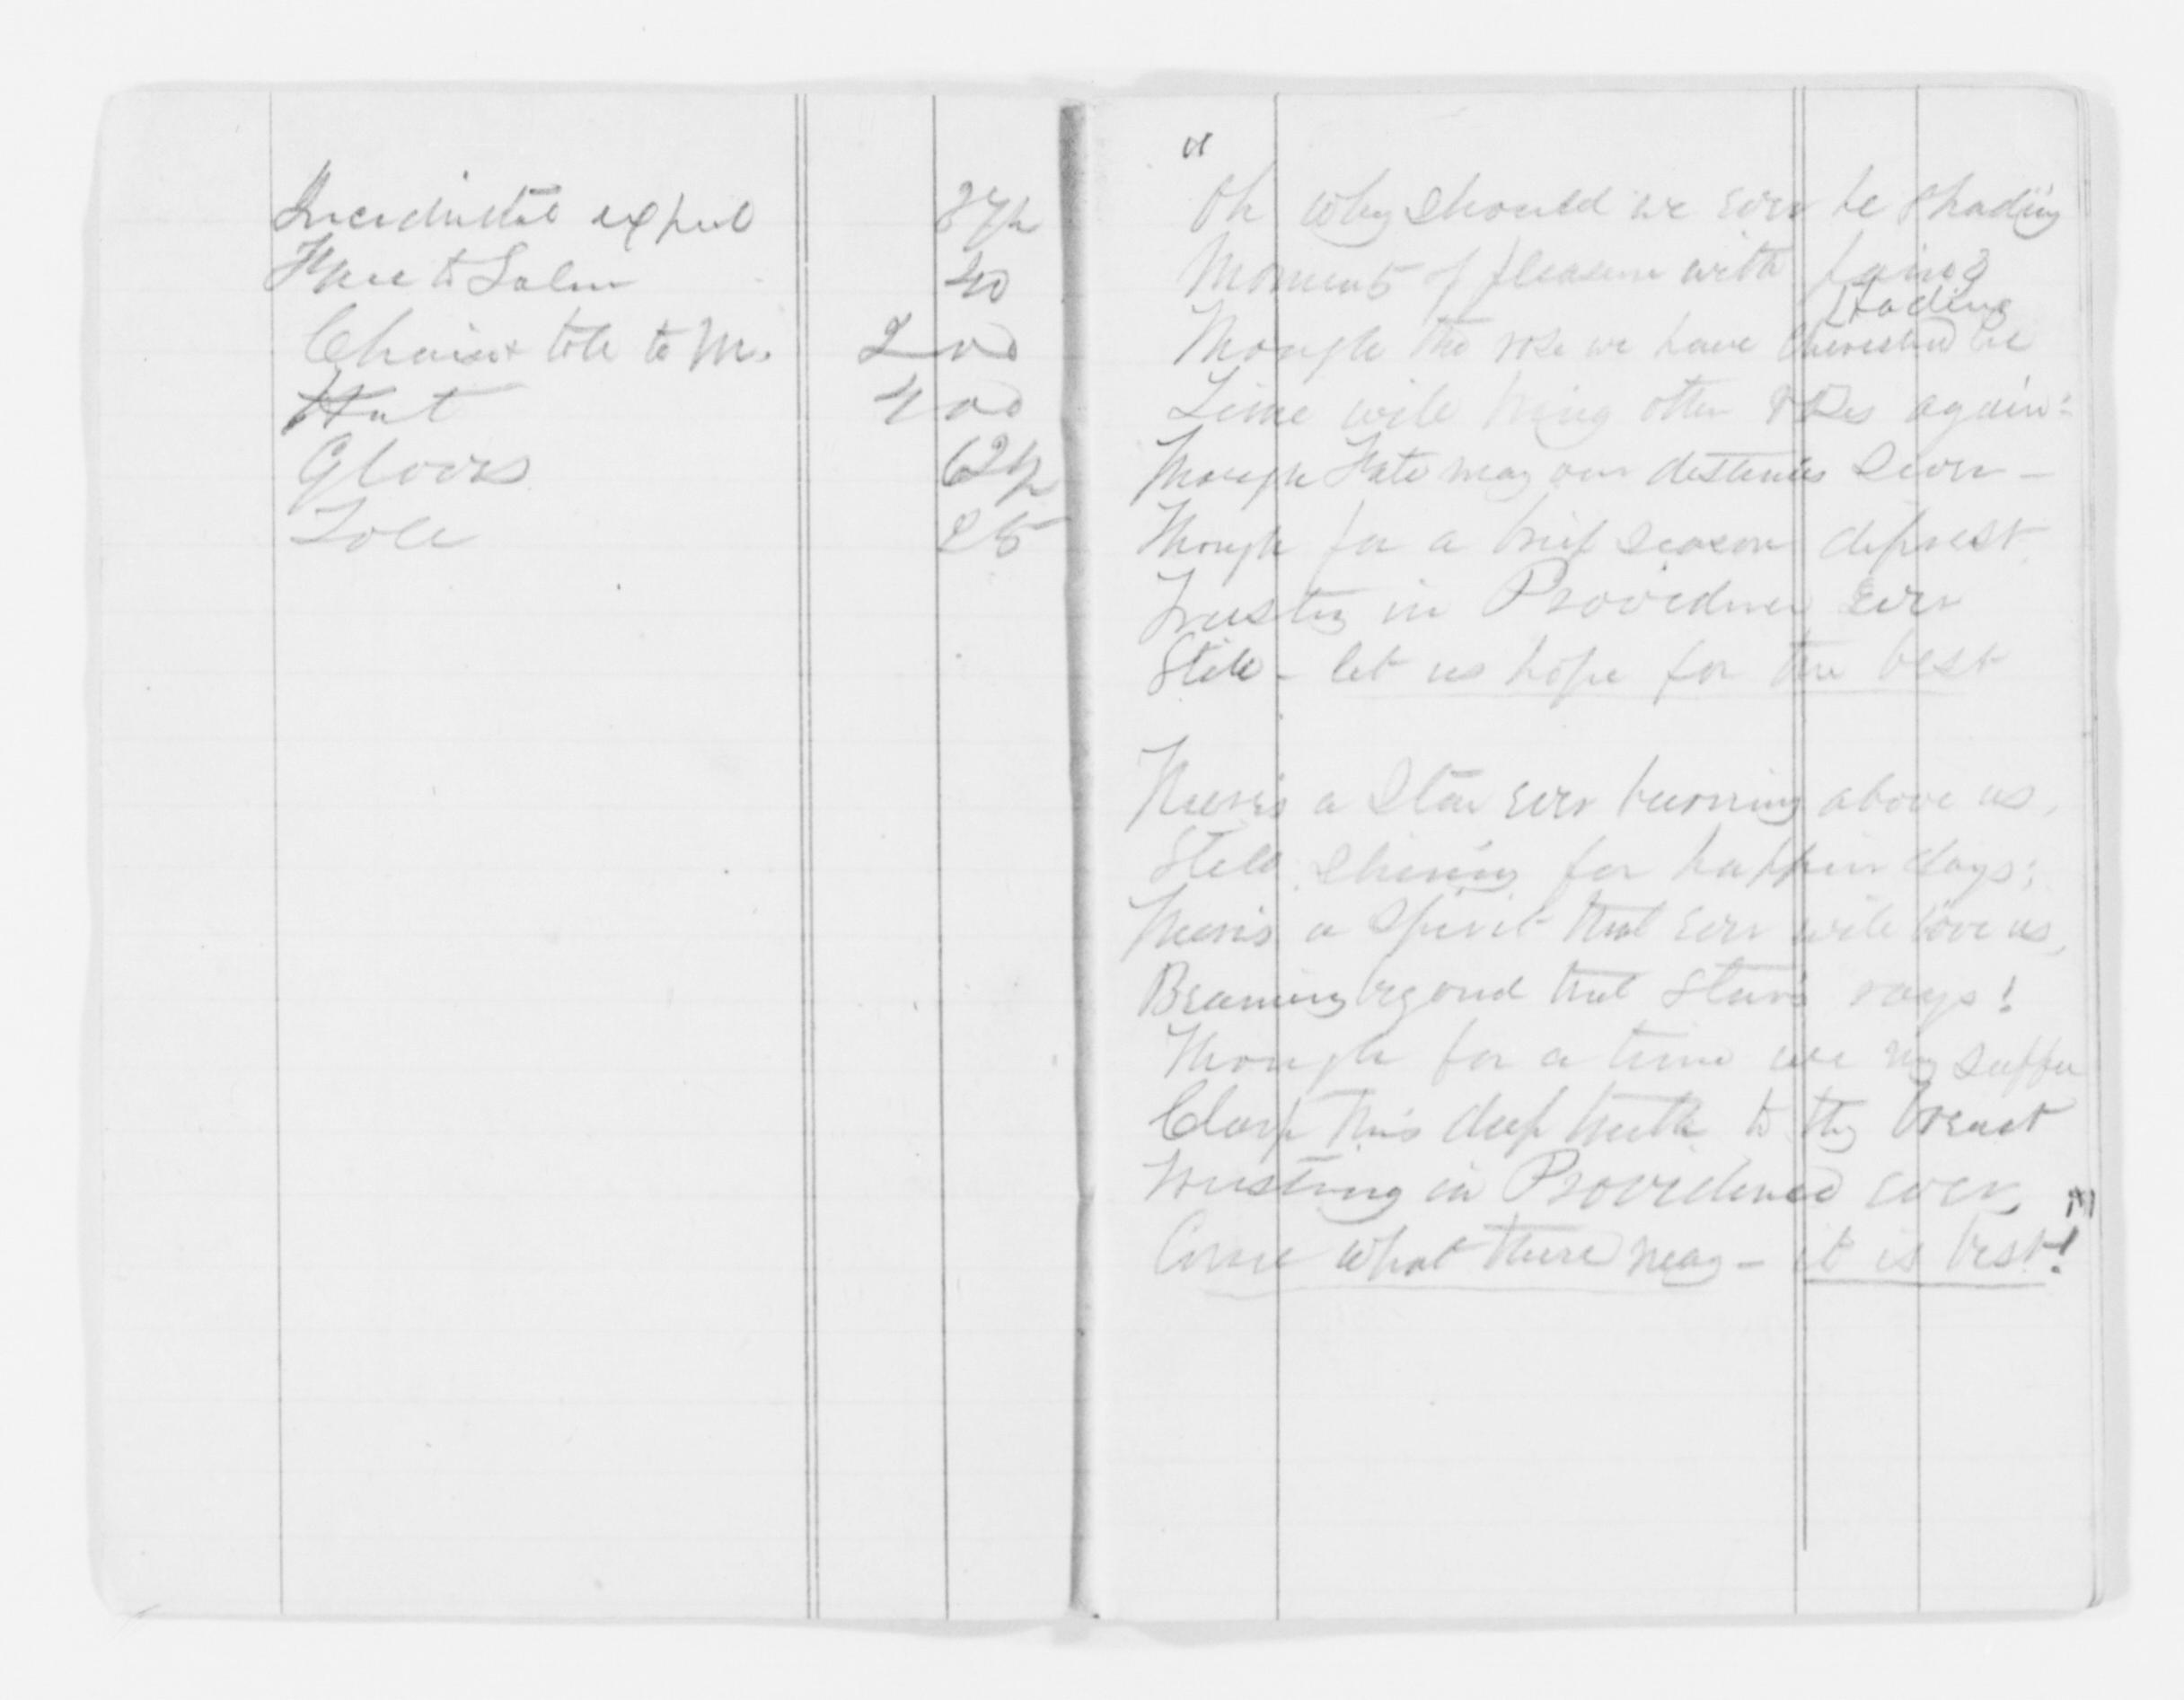 Incidental expend 37½
Fare to Salem 40
Chaise & tole to M. 2 00
Hat 4 00
Gloves 62½
Tole 25
"
Oh why should we ever be shading
Moments of pleasure with pain?
Though the rose we have cherished be fading
Time will bring other roses again:
Though Fate may our destinies sever —
Though for a brief season deprest
Trusting in Providence Ever
Still — let us hope for the best
There's a Star ever burning above us,
Still shining for happier days;
There's a Spirit that ever will love us,
Beaming beyond that Star's rays!
Though for a time we may suffer
Clasp this deep truth to thy breast
Trusting in Providence ever,
Come what there may — it is best! "